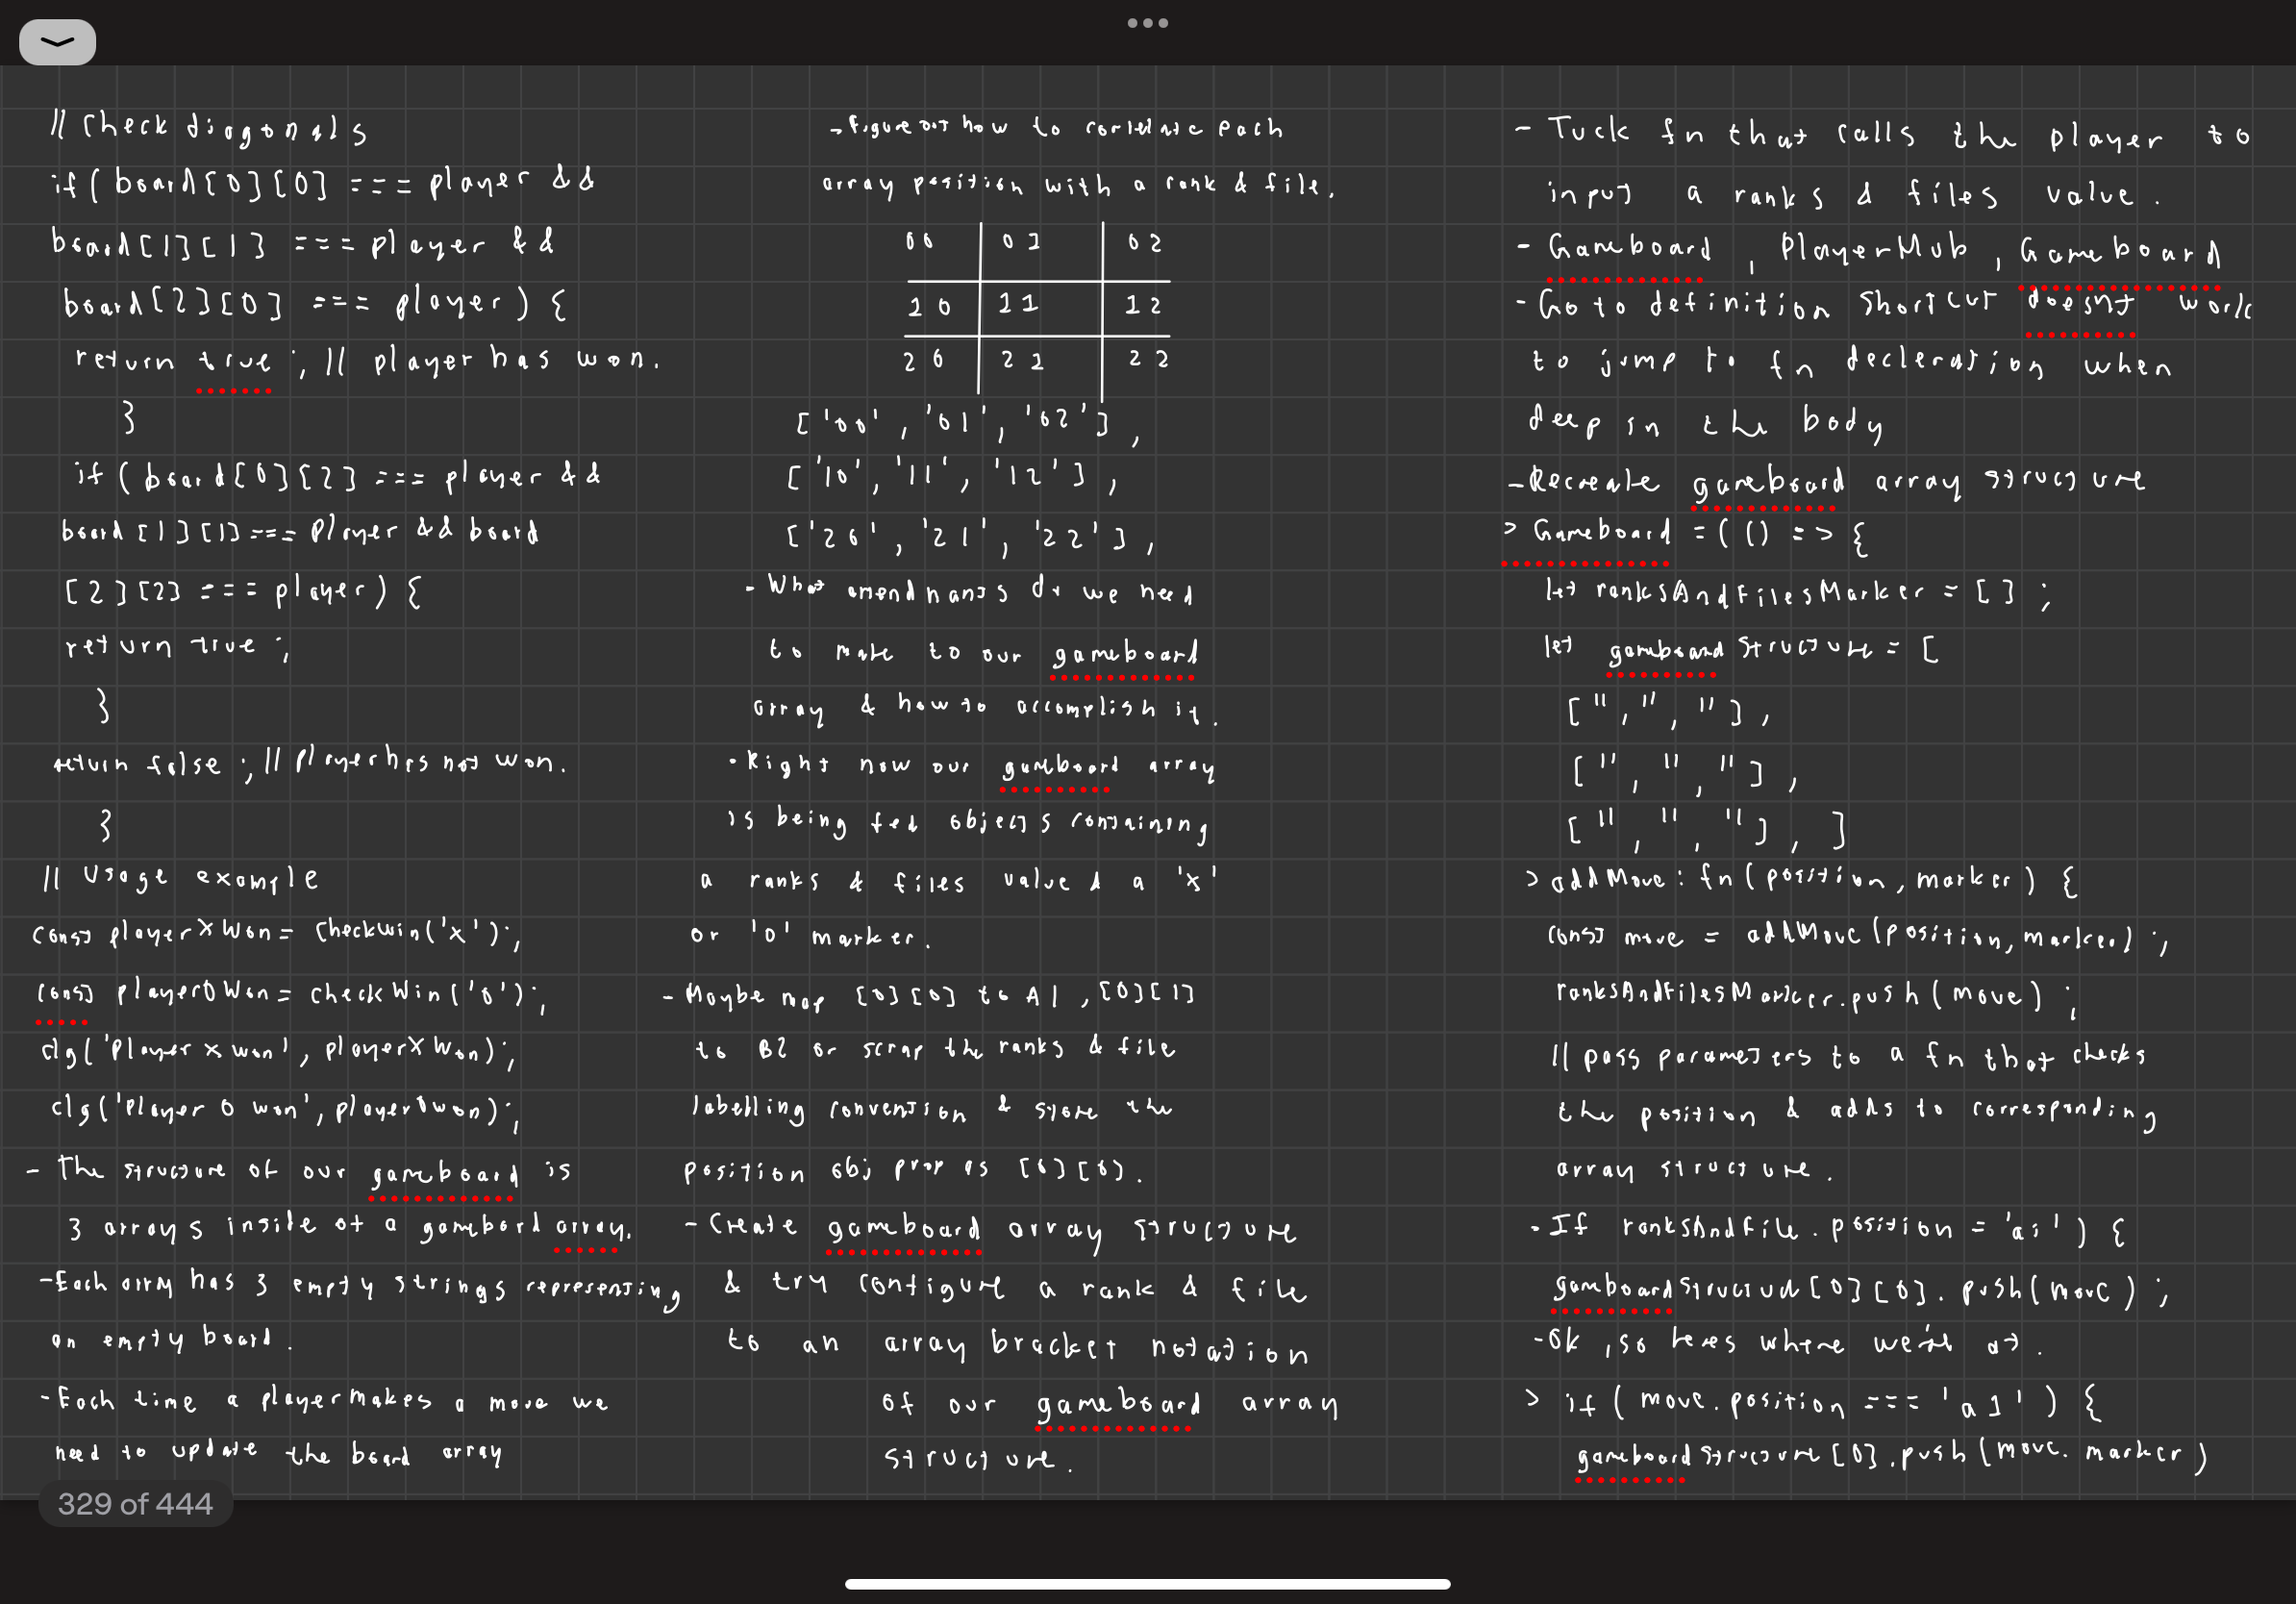 // Check diagonals
if ( board[0][0] === player &&
board[1][1] === player &&
board[2][0] === player) {
return true ; // player has won.
}
if ( board[0][2] === player &&
board [1][1] === Player && board
[2][2] === player) {
return true ;
}
return false ; // Player has not won.
}
// Usage example
const playerXWon = CheckWin('x');
const playerOWon = checkWin('o');
clg('Player x won', playerXWon);
clg('Player O won', playerOwon);
- The structure of our gameboard is
3 arrays inside of a gamebord array.
- Each array has 3 empty strings representing
an empty board.
- Each time a player makes a move we
need to update the board array
- Figure out how to corielate each
array position with a rank & file.
00 01 02
10 11 12
20 21 22
['00', '01', '02'],
['10', '11', '12'],
['20', '21', '22'],
- What amendments do we need
to make to our gameboard
array & how to accomplish it.
- Right now our gameboard array
is being fed objects containing
a ranks & files value & a 'x'
or 'o' marker.
- Maybe map [0][0] to A1, [0][1]
to B2 or scrap the ranks & file
labelling convention & store the
position obj prop as [0][0].
- Create gameboard array structure
& try configure a rank & file
to an array bracket notation
of our gameboard array
structure.
- Tuck fn that calls the player to
input a ranks & files value.
- Gameboard, PlayerMub, Gameboard
- Go to definition shortcut doesnt work
to jump to fn decleration when
deep in the body
- Recreate gameboard array structure
> Gameboard = ( () => {
let ranksAndFilesMarker = [] ;
let gameboardStructure = [
['','',''],
['','',''],
['','',''], ]
> addMove: fn(position, marker) {
const move = addMove(position, marker) ;
ranksAndFilesMarker.push(move) ;
// pass parameters to a fn that checks
the position & adds to corresponding
array structure.
- If ranksAndFile.position = 'a1') {
gameboardStructud[0][0].push(move) ;
- Ok, so heres where we're at.
> if ( move.position === 'a1' ) {
gameboardStructure[0].push(move.marker)
329 of 444